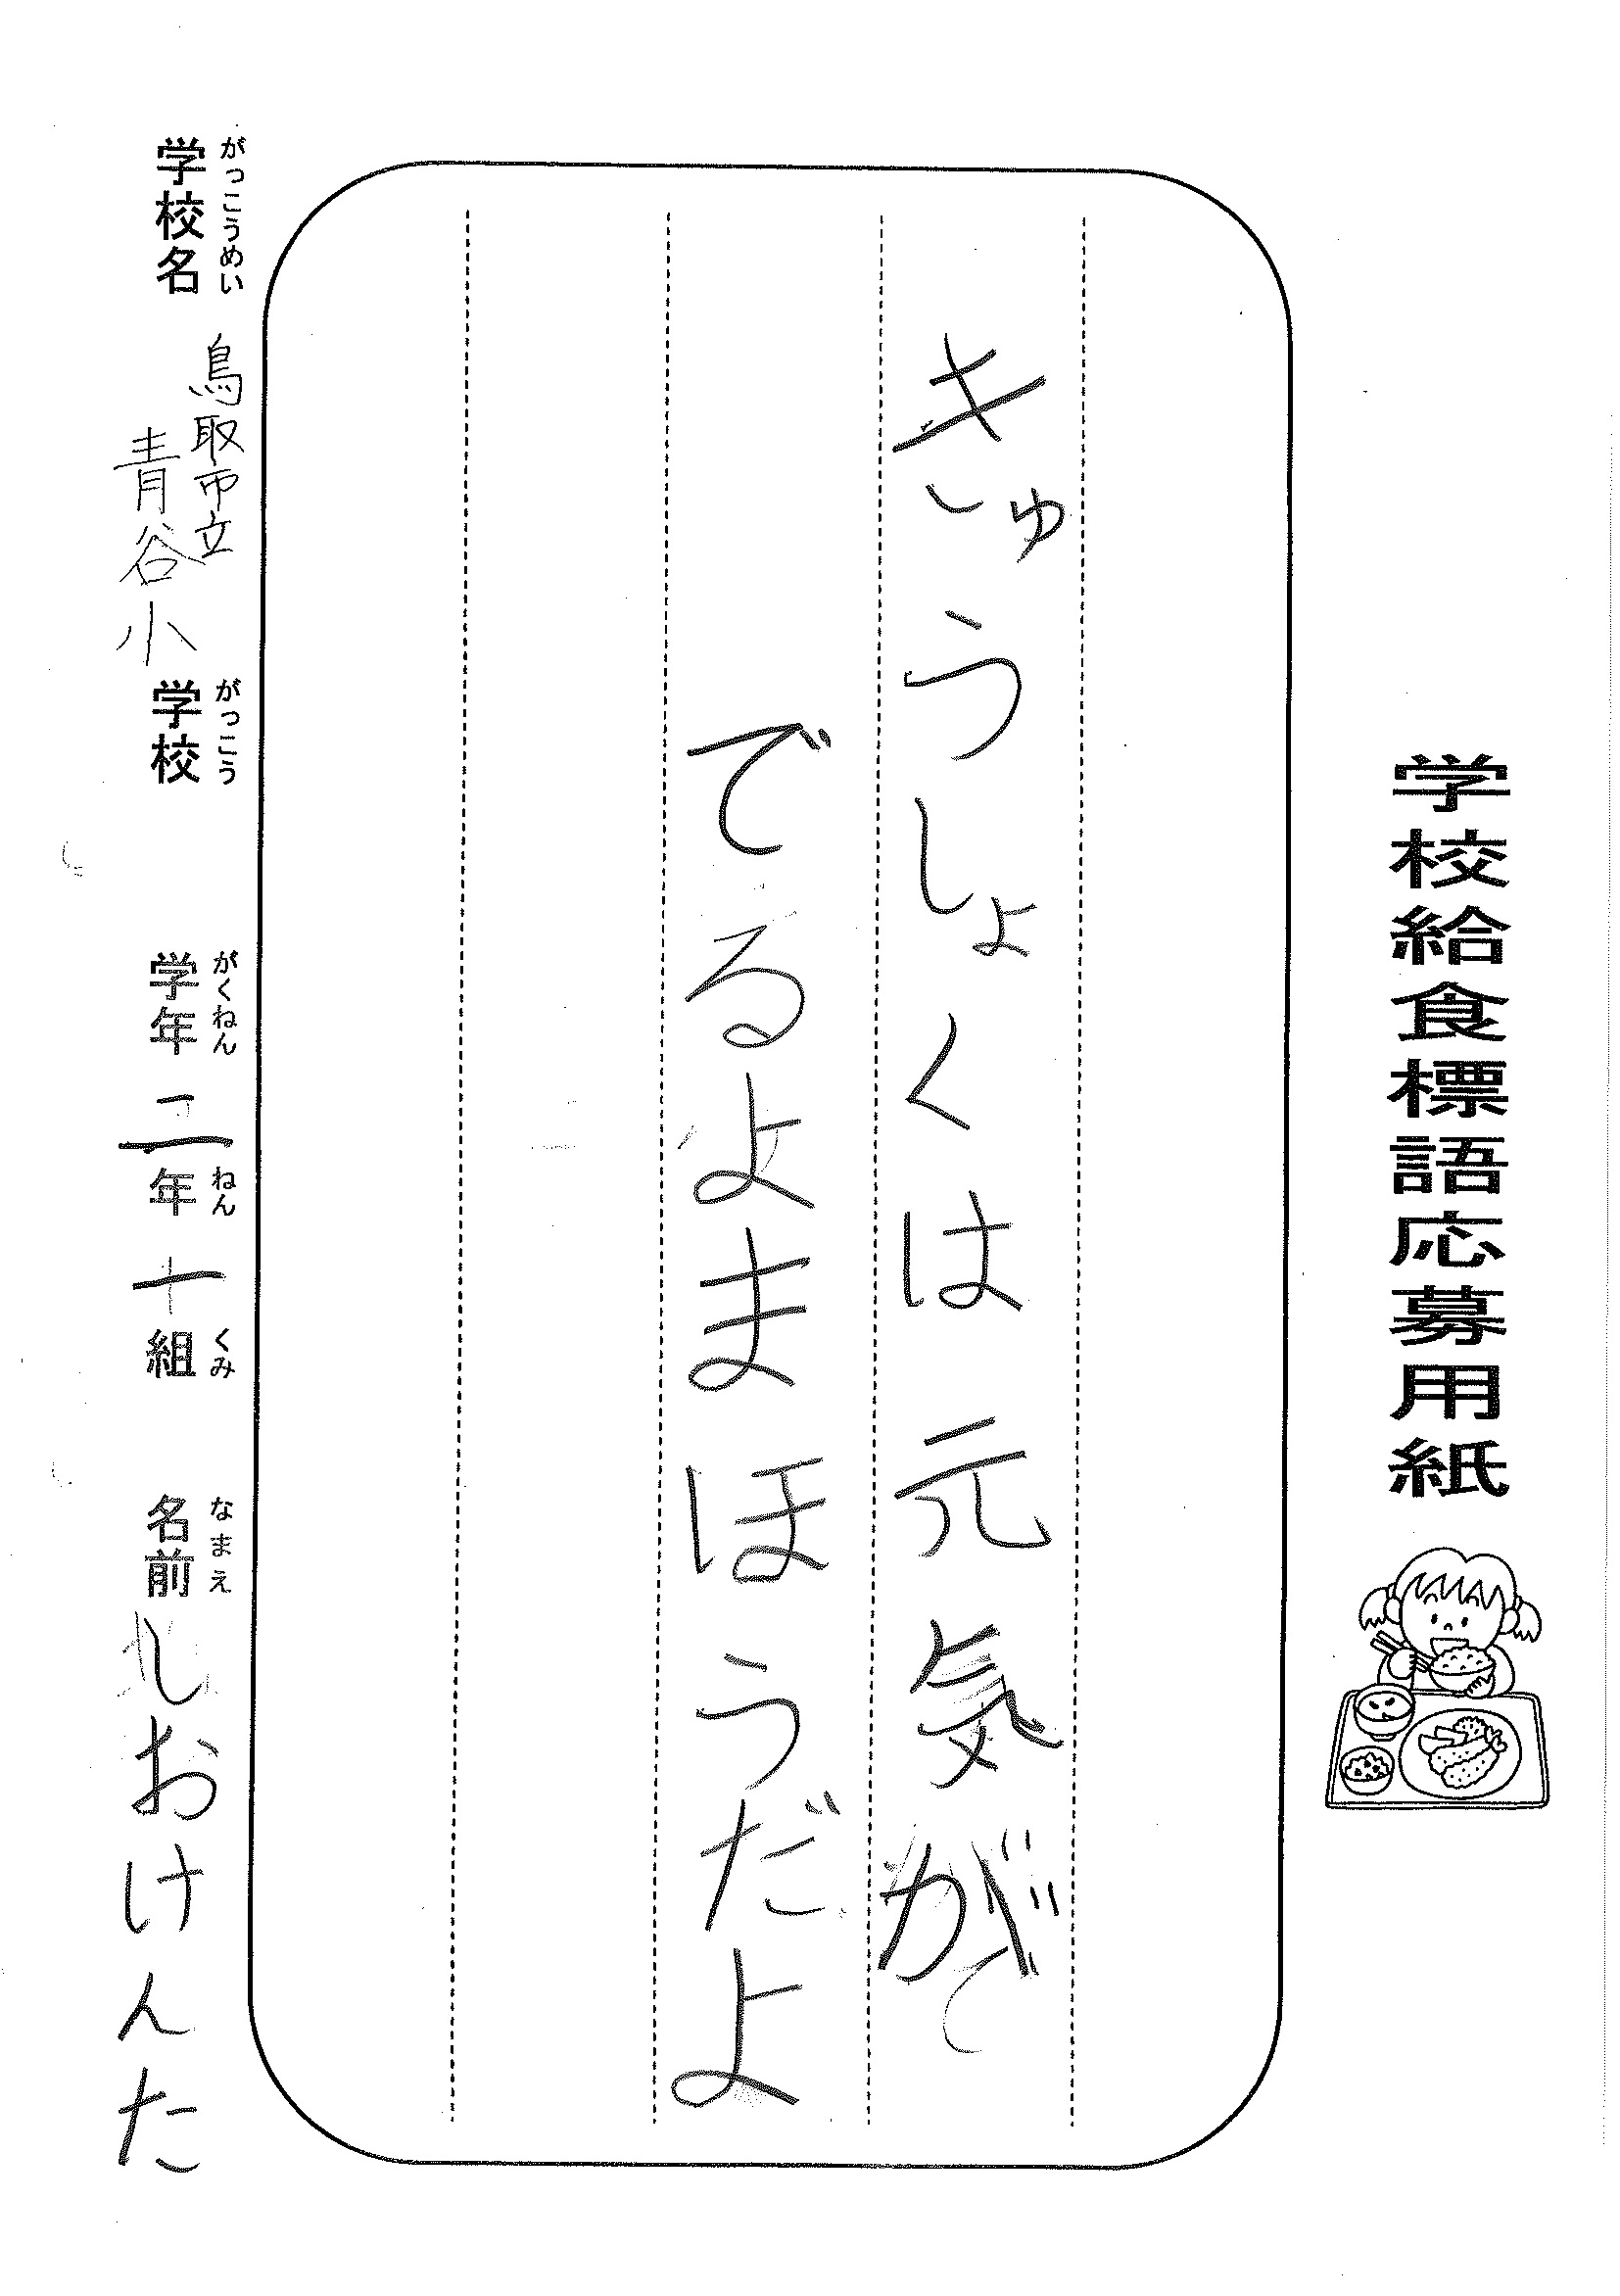 学校給食標語応募用紙
きゅうしょくは元気が
でるよまほうだよ
がっこうめい
学校名
鳥取市立
青谷小
がっこう
学校
がくねん
学年
二
ねん
年
くみ
組
なまえ
名前
しおけんた